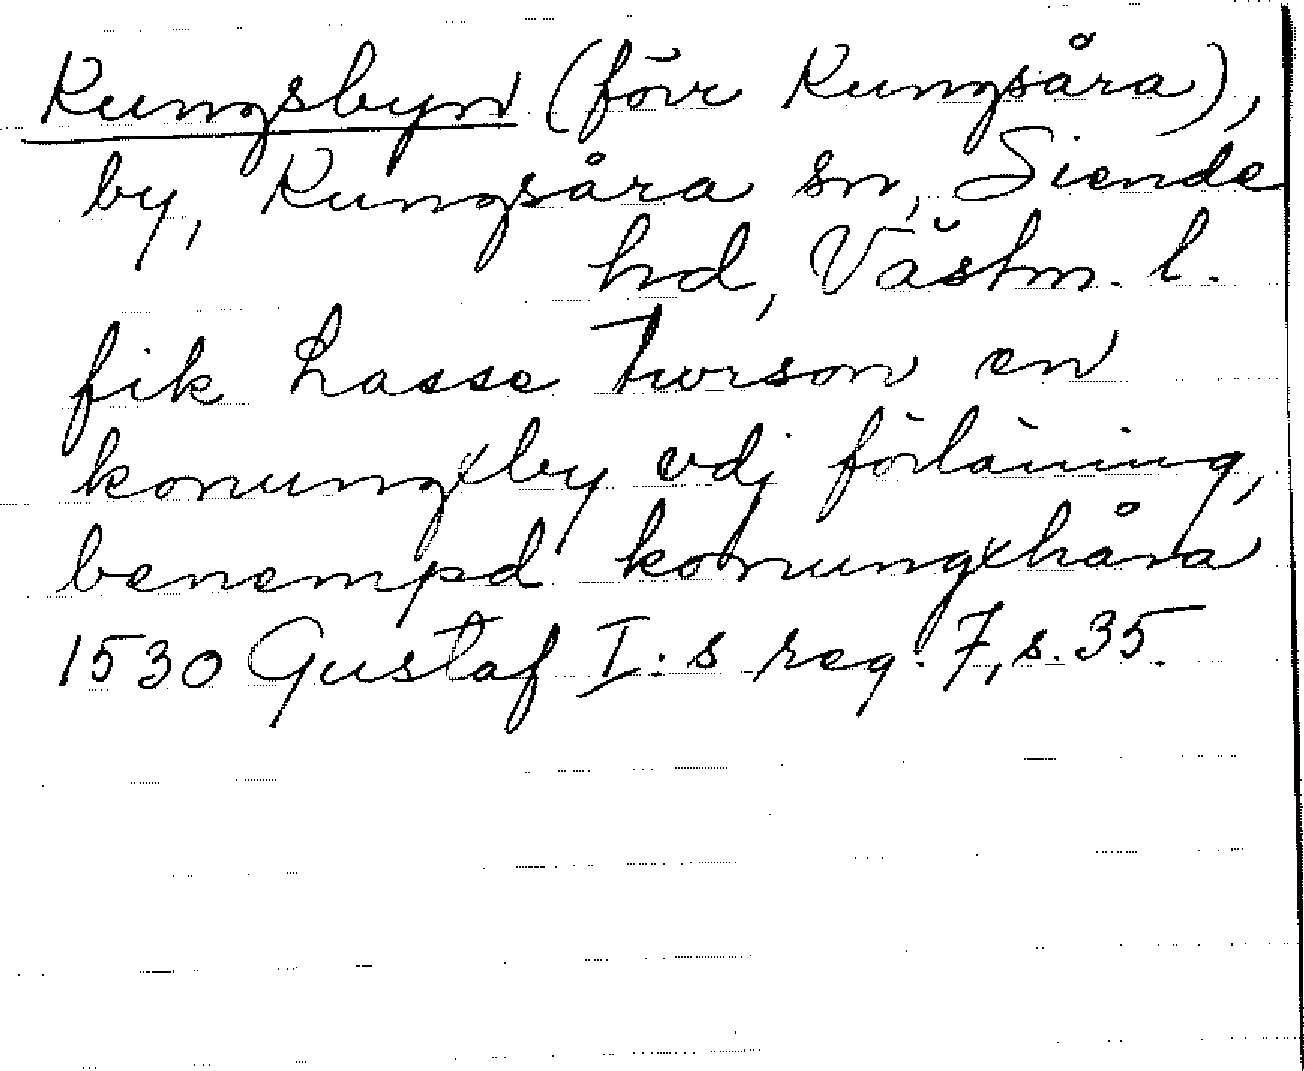 Kungsbyn (förr Kungsåra),
by, Kungsåra sn, Siende
hd, Västm. l.
fik Lasse Turson en
konungxby vdj förläning,
benempd konungxhåra
1530 Gustaf I:s reg. 7, s. 35.